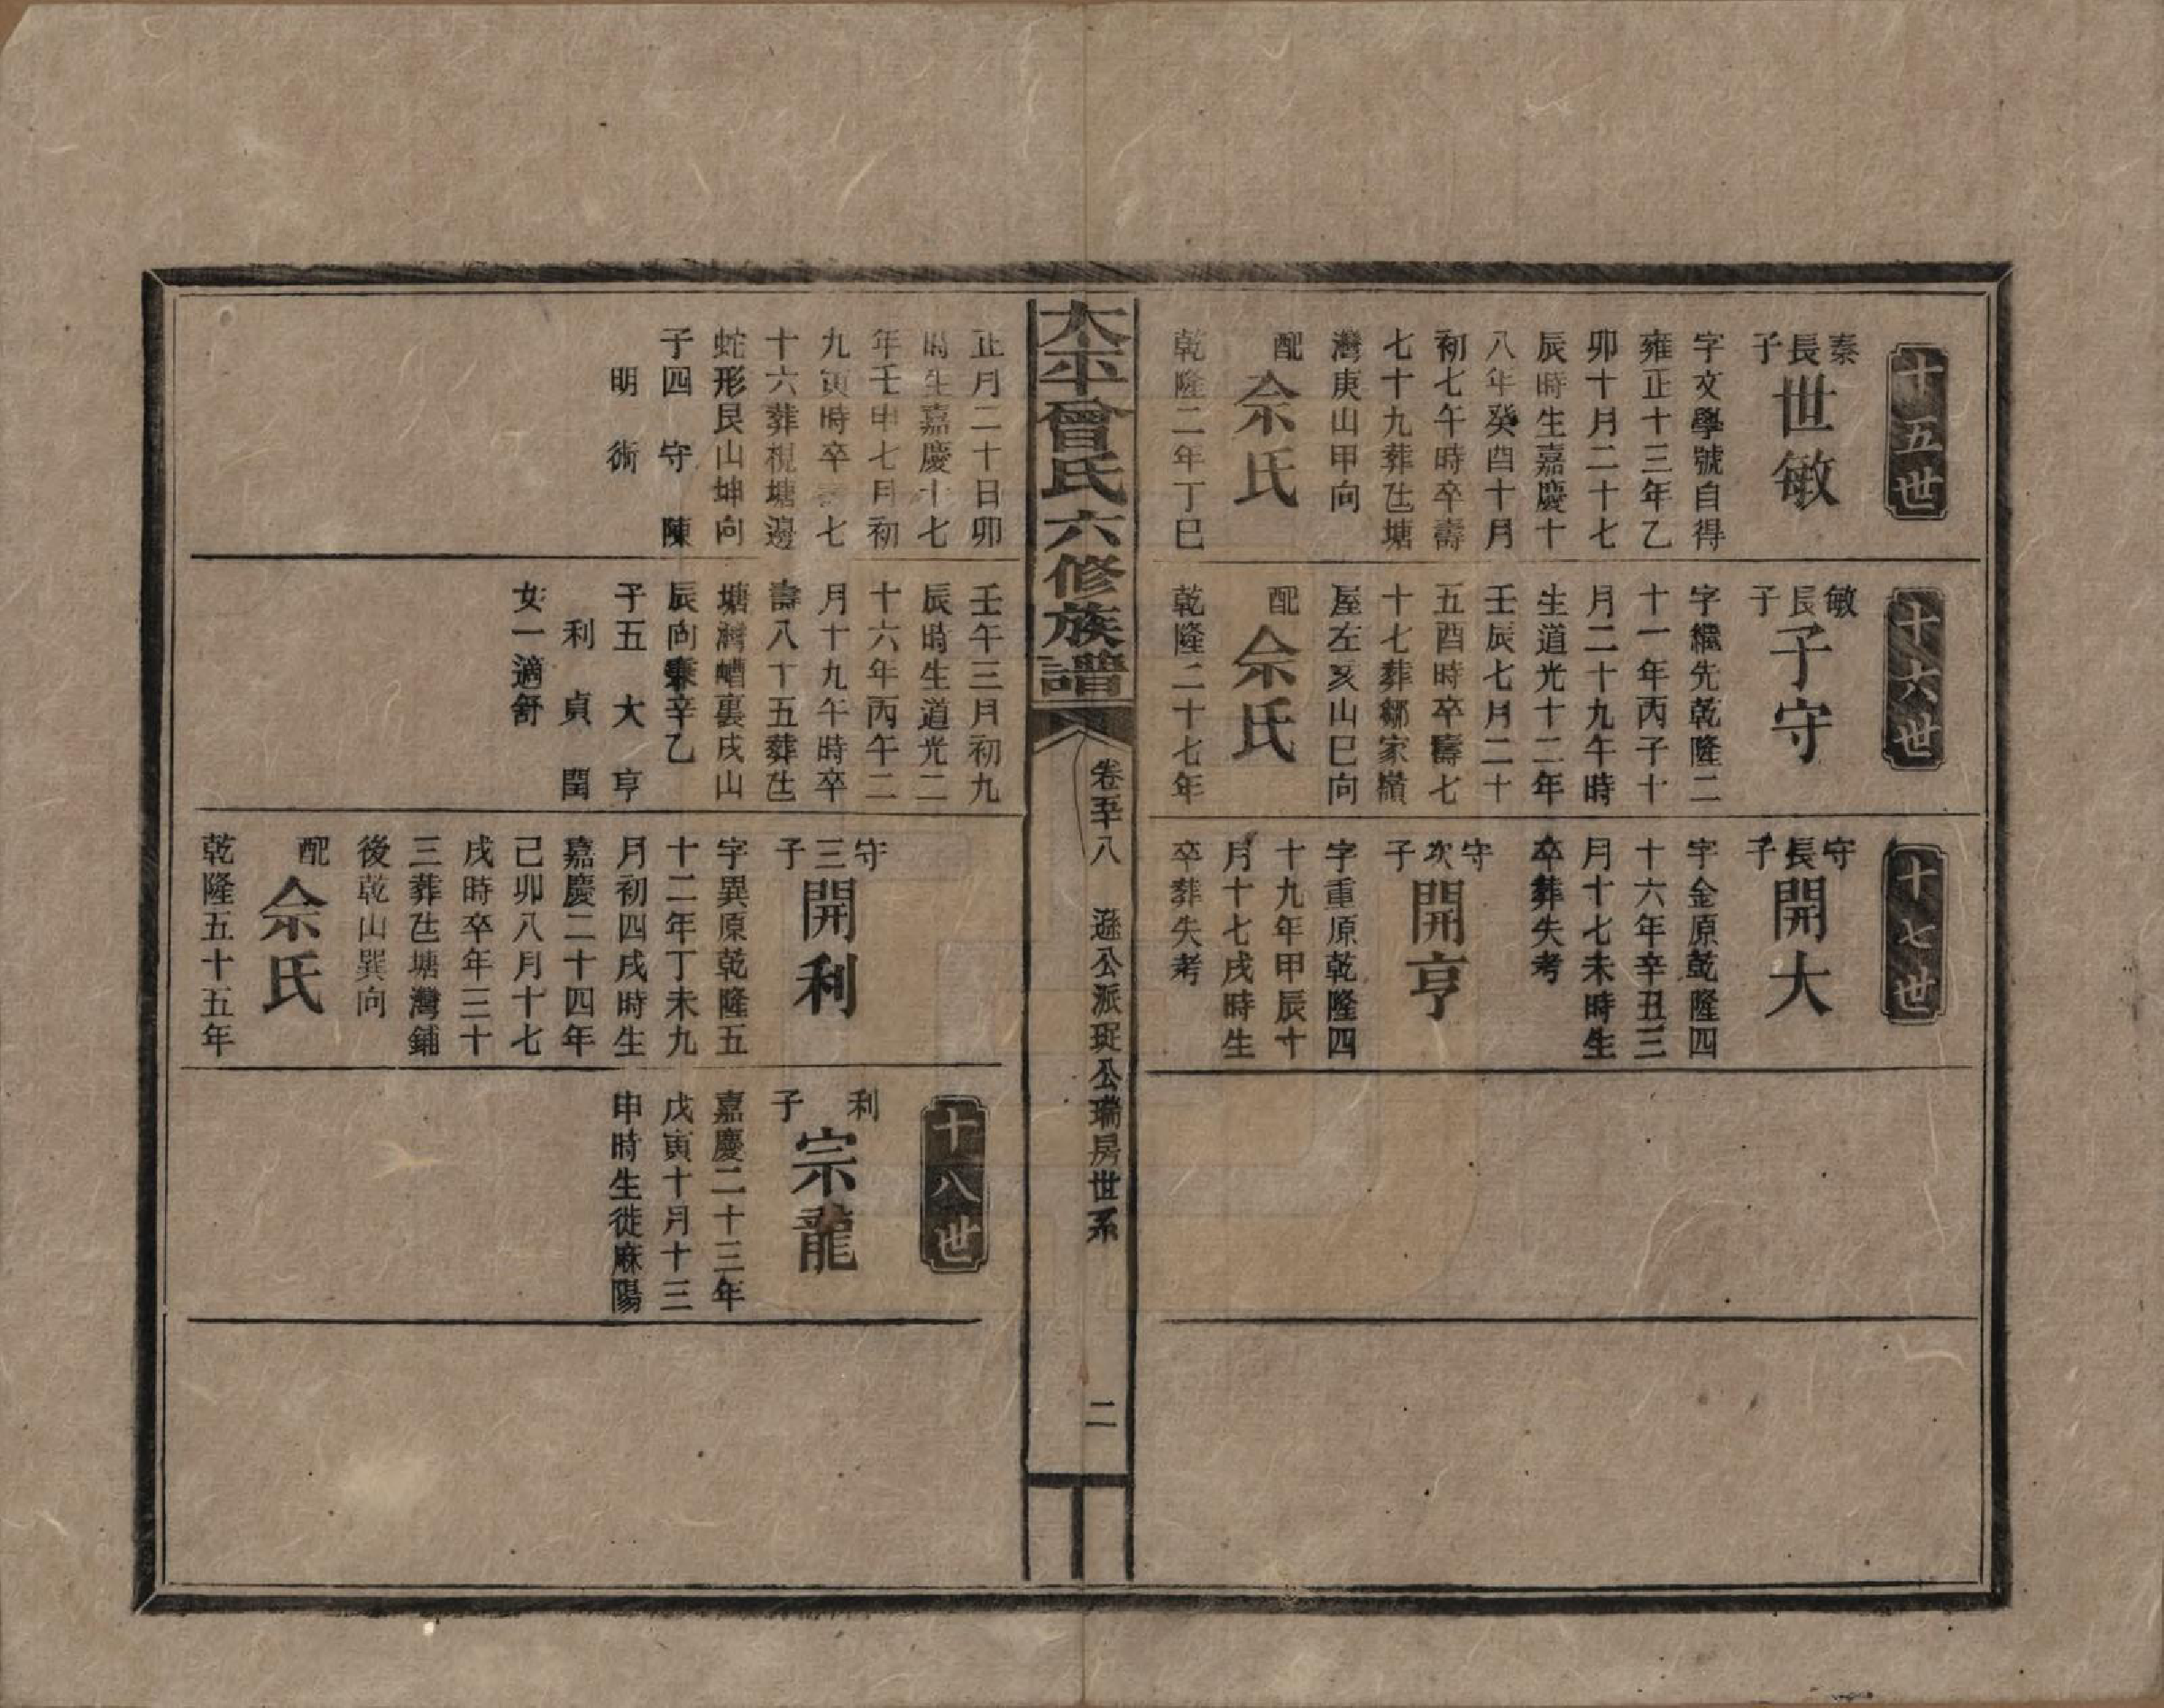 十五世
秦長子
世敏
字文學號自得
雍正十三年乙
卯十月二十七
辰時生嘉慶十
八年癸酉十月
初七午時卒壽
七十九葬㐌塘
灣庚山甲向
配
佘氏
乾隆二年丁巳
十六世
敏長子
子守
字繼先乾隆二
十一年丙子十
月二十九午時
生道光十二年
壬辰七月二十
五酉時卒壽七
十七葬鄒家嶺
屋左亥山巳向
配
佘氏
乾隆二十七年
十七世
守長子
開大
字金原乾隆四
十六年辛丑三
月十七未時生
卒葬失考
守次子
開亨
字重原乾隆四
十九年甲辰十
月十七戌時生
卒葬失考
太平曾氏六修族譜
卷至十八 遜公派珽公瑞房世系
二
正月二十日卯
時生嘉慶十七
年壬申七月初
九寅時卒壽七
十六葬枧塘邊
蛇形艮山坤向
子四 守 陳
明 術
壬午三月初九
辰時生道光二
十六年丙午二
月十九午時卒
壽八十五葬㐌
塘灣嶆裏戌山
辰向兼辛乙
子五 大 亨
利 貞 閏
女一適舒
守三子
開利
字異原乾隆五
十二年丁未九
月初四戌時生
嘉慶二十四年
己卯八月十七
戌時卒年三十
三葬㐌塘灣鋪
後乾山巽向
配
佘氏
乾隆五十五年
十八世
利子
宗龍
嘉慶二十三年
戊寅十月十三
申時生徙麻陽